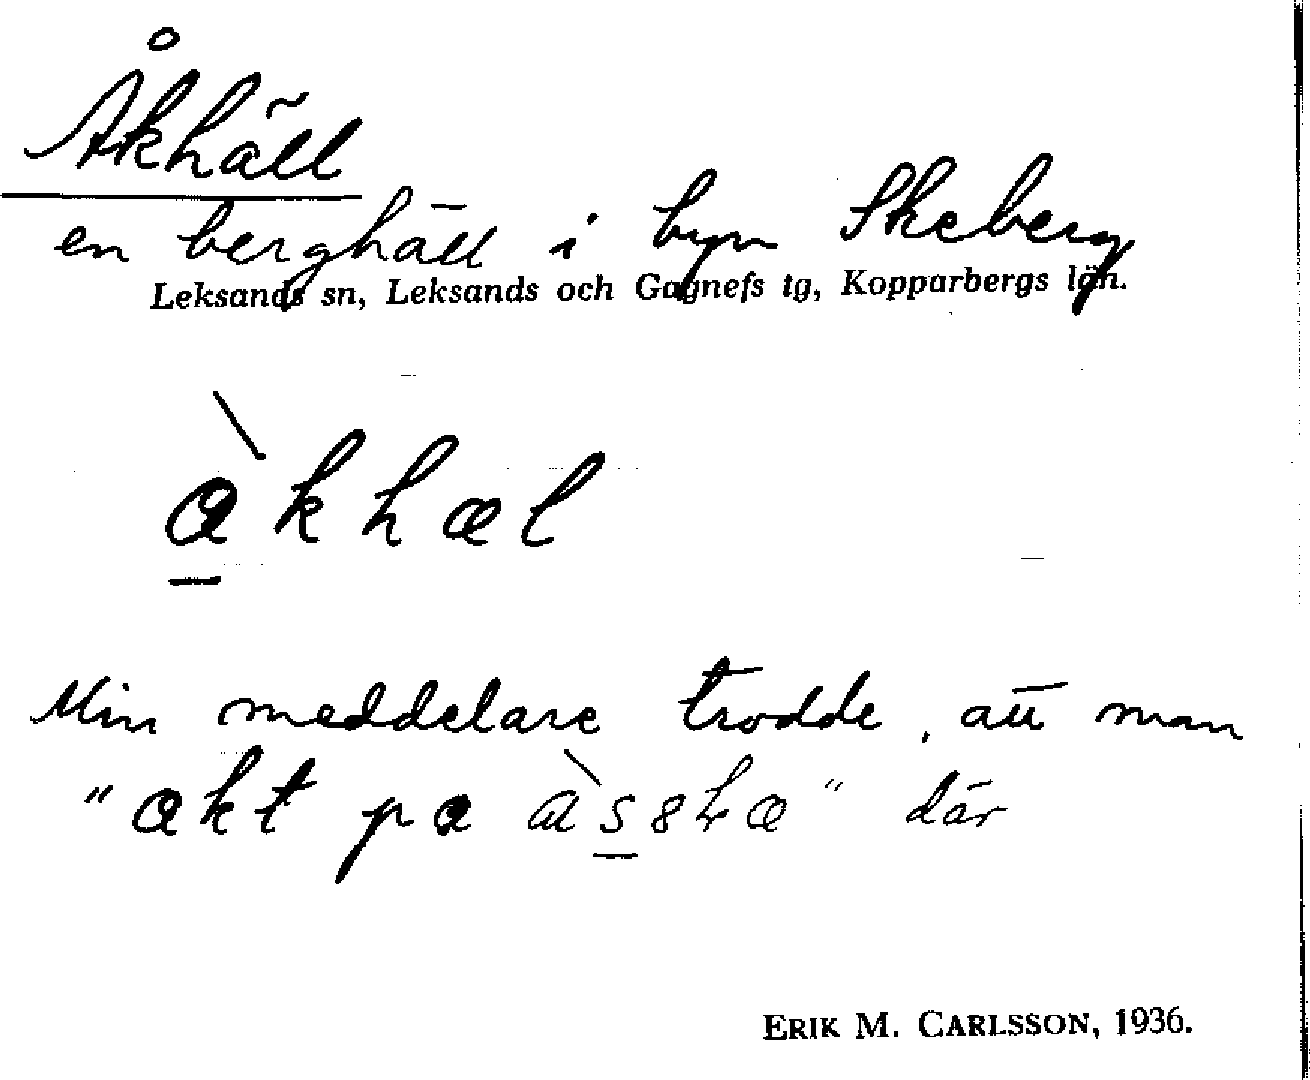 Åkhäll
en berghäll i byn Skeberg
Leksands sn, Leksands och Gagnefs tg, Kopparbergs län.
àkhæl
Min meddelare trodde, att man
"akt pa" där
ERIK M. CARLSSON, 1936.